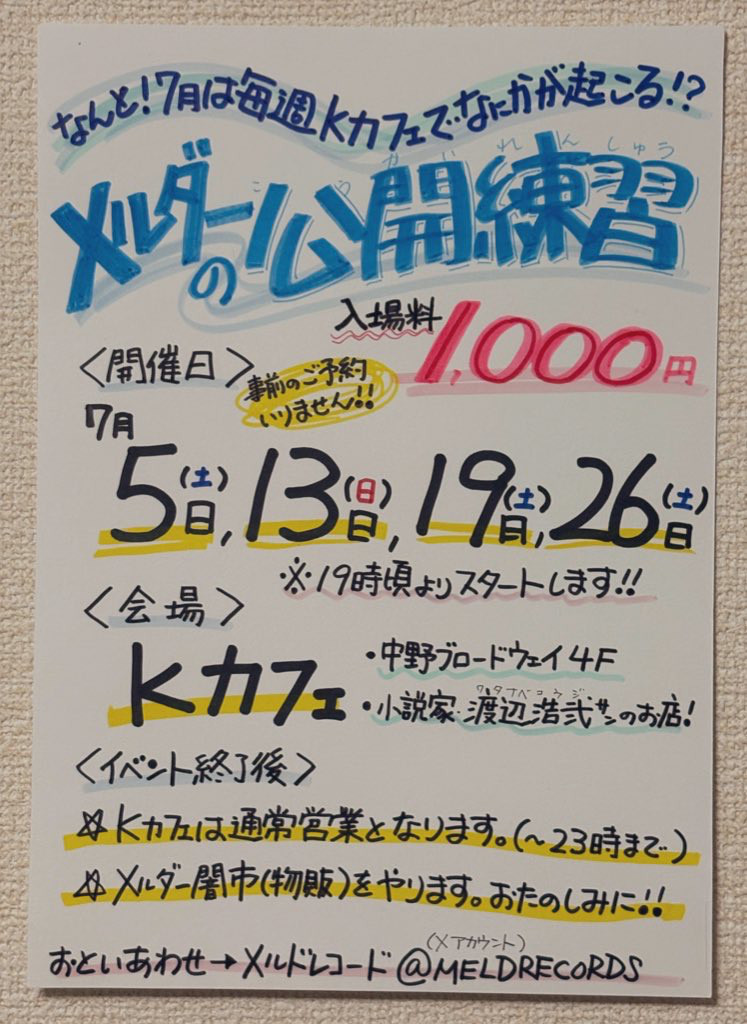 なんと!7月は毎週Kカフェでなにかが起こる!?
こうかいれんしゅう
メルダーの公開練習
入場料 1,000円
<開催日>
事前のご予約
いりません!!
7月
5日(土), 13日(日), 19日(土), 26日(土)
※19時頃よりスタートします!!
<会場>
Kカフェ
・中野ブロードウェイ4F
ワタナベコウジ
・小説家・渡辺浩弐サンのお店!
<イベント終了後>
☆Kカフェは通常営業となります。(~23時まで)
☆メルダー闇市(物販)をやります。おたのしみに!!
(Xアカウント)
おといあわせ→メルドレコード@MELDRECORDS